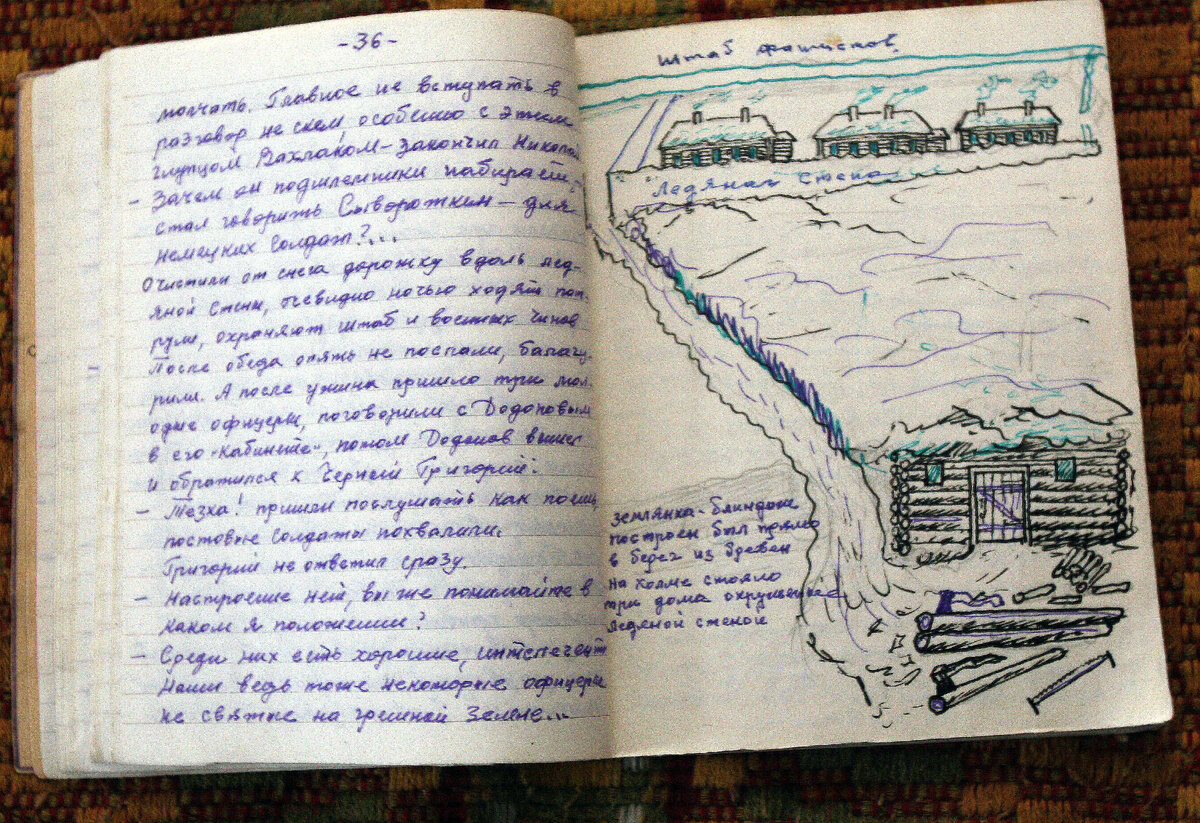 -36-
молчать. Главное не вступать в
разговор не скем, особенно с этим
глупцом Вахлаком - закончил Николай
- Зачем он подшлемники набирает, -
стал говорить Сывороткин - для
немецких солдат?...
Очистили от снега дорожку вдоль лед-
яной стены, очевидно ночью ходят пат-
рули, охраняют штаб и востных чинов
После обеда опять не поспали, балагу-
рили. А после ужина пришло три мол-
одые офицеры, поговорили с Додоновым
в его "кабинете", потом Додонов вышел
и обратился к Черней Григорий:
- Тезка! пришли послушать как поешь,
постовые солдаты похвалили.
Григорий не ответил сразу.
- Настроение нет, вы же понимайте в
каком я положении?
- Среди них есть хорошие, интелегент
Наши ведь тоже некоторые офицеры
не святые на грешной земле...
Штаб фашистов,
Ледяная стена
Землянка-блиндаж
построен был прямо
в берег из бревен
на холме стояло
три дома окруженные
ледяной стеной